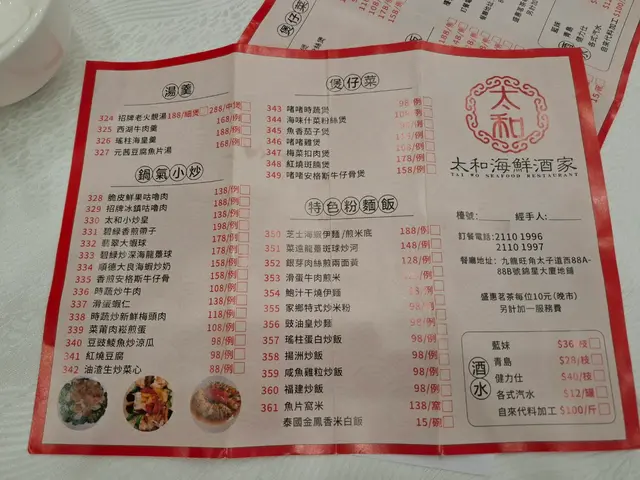 湯羹
324 招牌老火靚湯 188/細煲 288/中煲
325 西湖牛肉羹 168/例
326 瑤柱海皇羹 168/例
327 元茜豆腐魚片湯 168/例
鍋氣小炒
328 脆皮鮮果咕嚕肉 138/例
329 招牌冰鎮咕嚕肉 158/例
330 太和小炒皇 188/例
331 碧綠香煎帶子 198/例
332 翡翠大蝦球 178/例
333 碧綠炒深海龍躉球
334 順德大良海蝦炒奶 158/例
335 香煎安格斯牛仔骨 158/例
336 時蔬炒牛肉 108/例
337 滑蛋蝦仁 138/例
338 時蔬炒新鮮梅頭肉 118/例
339 菜甫肉崧煎蛋 108/例
340 豆豉鯪魚炒涼瓜 98/例
341 紅燒豆腐 98/例
342 油渣生炒菜心 88/例
煲仔菜
343 啫啫時蔬煲 98/例
344 海味什菜粉絲煲
345 魚香茄子煲
346 啫啫雞煲
347 梅菜扣肉煲
348 紅燒斑腩煲
349 啫啫安格斯牛仔骨煲 158/例
特色粉麵飯
350 芝士海蝦伊麵/煎米底 188/例
351 菜遠龍躉斑球炒河 148/例
352 銀芽肉絲煎兩面黃 128/例
353 滑蛋牛肉煎米
354 鮑汁干燒伊麵
355 家鄉特式炒米粉 98/例
356 豉油皇炒麵
357 瑤柱蛋白炒飯
358 揚洲炒飯 98/例
359 咸魚雞粒炒飯
360 福建炒飯
361 魚片窩米 138/窩
泰國金鳳香米白飯 15/碗
太和
太和海鮮酒家
TAI WO SEAFOOD RESTAURANT
檯號: 經手人:
訂餐電話:2110 1996
2110 1997
餐廳地址: 九龍旺角太子道西88A-
88B號錦星大廈地舖
盛惠茗茶每位10元(晚市)
另計加一服務費
酒水
藍妹 $36/枝
青島 $28/枝
健力仕 $40/枝
各式汽水 $12/罐
自來代料加工 $100/斤